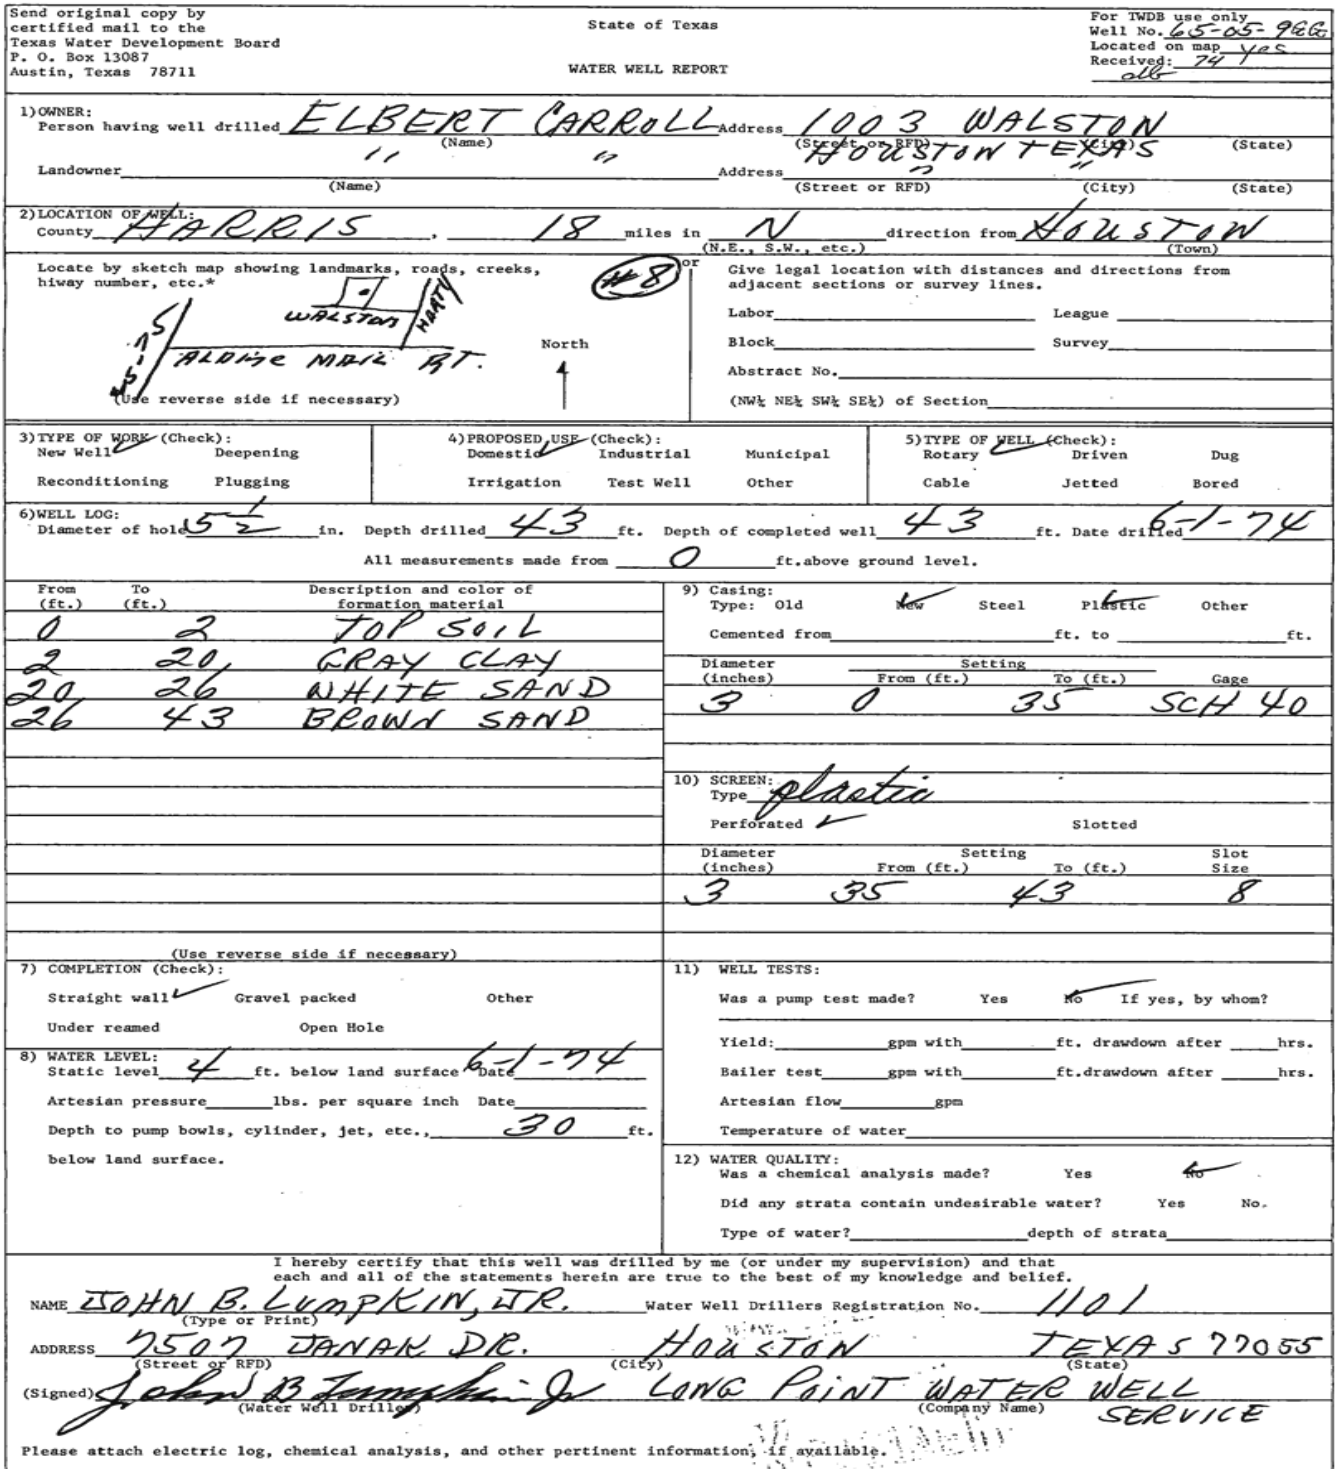 Send original copy by
certified mail to the
Texas Water Development Board
P. O. Box 13087
Austin, Texas 78711
State of Texas
WATER WELL REPORT
For TWDB use only
Well No. 65-05-9GGG
Located on map yes
Received: 74
db
1)OWNER:
Person having well drilled ELBERT CARROLL Address 1003 WALSTON
(Name) (Street or RFD) (City) (State)
HOUSTON TEXAS
Landowner " " Address " "
(Name) (Street or RFD) (City) (State)
2)LOCATION OF WELL:
County HARRIS, 18 miles in N direction from HOUSTON
(N.E., S.W., etc.) (Town)
Locate by sketch map showing landmarks, roads, creeks,
hiway number, etc.*
#8
WALSTON
HARTY
ALDINE MAIL RT.
North
(Use reverse side if necessary)
or
Give legal location with distances and directions from
adjacent sections or survey lines.
Labor League
Block Survey
Abstract No.
(NW¼ NE¼ SW¼ SE¼) of Section
3)TYPE OF WORK (Check):
New Well ✓ Deepening
Reconditioning Plugging
4)PROPOSED USE (Check):
Domestic ✓ Industrial Municipal
Irrigation Test Well Other
5)TYPE OF WELL (Check):
Rotary ✓ Driven Dug
Cable Jetted Bored
6)WELL LOG:
Diameter of hole 5 1/2 in. Depth drilled 43 ft. Depth of completed well 43 ft. Date drilled 6-1-74
All measurements made from 0 ft.above ground level.
From (ft.) To (ft.) Description and color of formation material
0 2 TOP SOIL
2 20 GRAY CLAY
20 26 WHITE SAND
26 43 BROWN SAND
(Use reverse side if necessary)
9) Casing:
Type: Old New ✓ Steel Plastic ✓ Other
Cemented from ft. to ft.
Diameter (inches) Setting From (ft.) To (ft.) Gage
3 0 35 SCH 40
10) SCREEN:
Type plastic
Perforated ✓ Slotted
Diameter (inches) Setting From (ft.) To (ft.) Slot Size
3 35 43 8
7) COMPLETION (Check):
Straight wall ✓ Gravel packed Other
Under reamed Open Hole
8) WATER LEVEL:
Static level 4 ft. below land surface Date 6-1-74
Artesian pressure lbs. per square inch Date
Depth to pump bowls, cylinder, jet, etc., 30 ft.
below land surface.
11) WELL TESTS:
Was a pump test made? Yes No ✓ If yes, by whom?
Yield: gpm with ft. drawdown after hrs.
Bailer test gpm with ft.drawdown after hrs.
Artesian flow gpm
Temperature of water
12) WATER QUALITY:
Was a chemical analysis made? Yes No ✓
Did any strata contain undesirable water? Yes No.
Type of water? depth of strata
I hereby certify that this well was drilled by me (or under my supervision) and that
each and all of the statements herein are true to the best of my knowledge and belief.
NAME JOHN B. LUMPKIN, JR. Water Well Drillers Registration No. 1101
(Type or Print)
ADDRESS 7507 JANAK DR. HOUSTON TEXAS 77055
(Street or RFD) (City) (State)
(Signed) John B Lumpkin Jr LONG POINT WATER WELL
(Water Well Driller) (Company Name)
SERVICE
Please attach electric log, chemical analysis, and other pertinent information, if available.